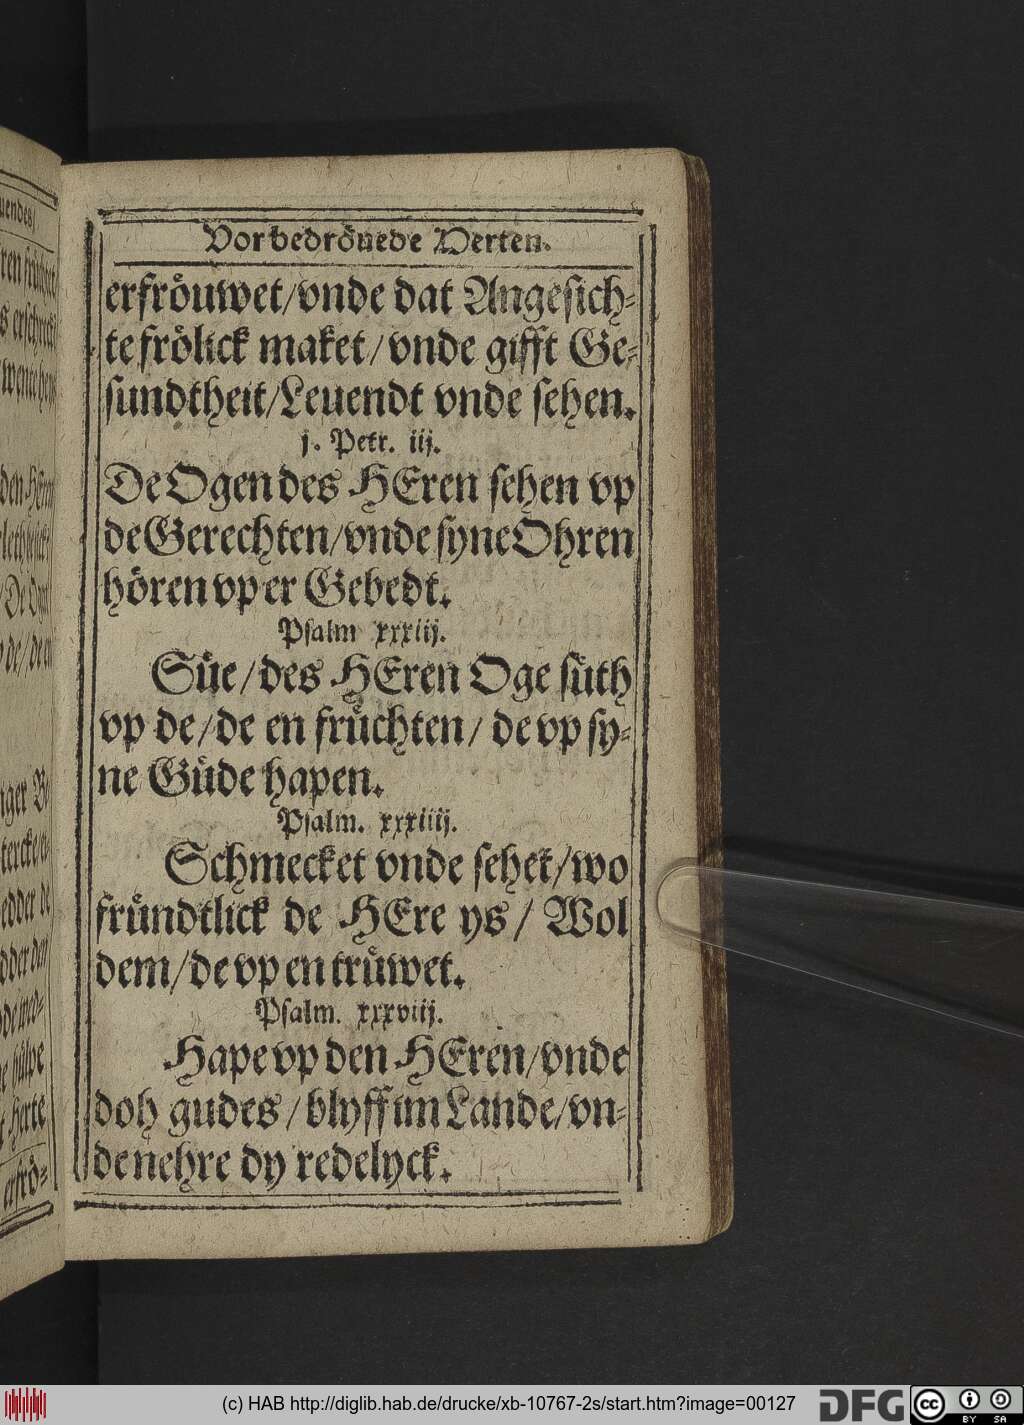 Vorbedröuede Herten.
erfröuwet/vnde dat Angesich-
te frölick maket/vnde gifft Ge-
sundtheit/Leuendt vnde sehen.
j. Petr. iij.
De Ogen des HEren sehen vp
de Gerechten/vnde syne Ohren
hören vp er Gebedt.
Psalm xxxiij.
Süe/des HEren Oge süth
vp de/de en früchten/de vp sy-
ne Güde hapen.
Psalm. xxxiiij.
Schmecket vnde sehet/wo
fründtlick de HEre ys/Wol
dem/de vp en trüwet.
Psalm. xxxviij.
Hape vp den HEren/vnde
doh gudes/blyff im Lande/vn-
de nehre dy redelyck.
(c) HAB http://diglib.hab.de/drucke/xb-10767-2s/start.htm?image=00127
DFG
cc
BY SA